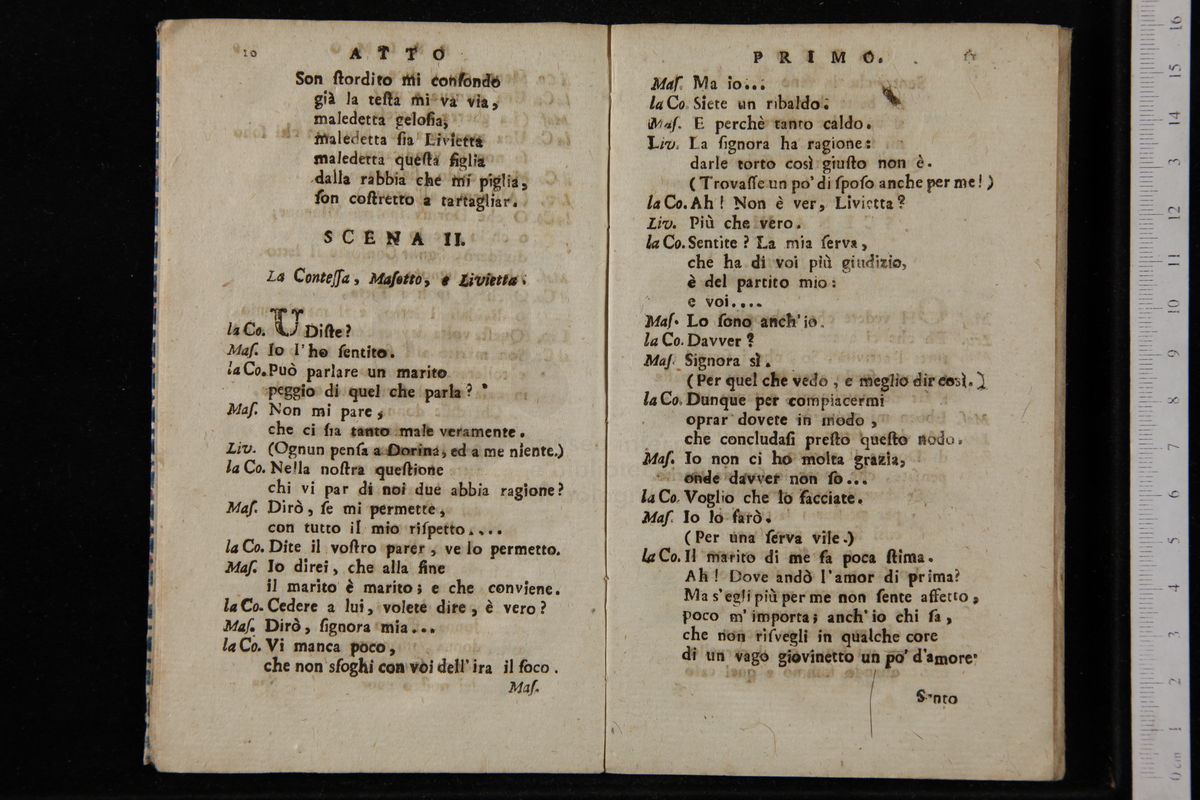 10 ATTO
Son ſtordito mi confondo
già la teſta mi va via,
maledetta geloſia,
maledetta ſia Livietta
maledetta queſta figlia
dalla rabbia che mi piglia,
ſon coſtretto a tartagliar.
SCENA II.
La Conteſſa, Maſotto, e Livietta.
la Co. UDiſte?
Maſ. Io l'ho ſentito.
la Co. Può parlare un marito
peggio di quel che parla?
Maſ. Non mi pare,
che ci ſia tanto male veramente.
Liv. (Ognun penſa a Dorina, ed a me niente.)
la Co. Nella noſtra queſtione
chi vi par di noi due abbia ragione?
Maſ. Dirò, ſe mi permette,
con tutto il mio riſpetto....
la Co. Dite il voſtro parer, ve lo permetto.
Maſ. Io direi, che alla fine
il marito è marito; e che conviene.
la Co. Cedere a lui, volete dire, è vero?
Maſ. Dirò, ſignora mia...
la Co. Vi manca poco,
che non sfoghi con voi dell'ira il foco.
Maſ.
PRIMO. 11
Maſ. Ma io...
la Co. Siete un ribaldo.
Maſ. E perchè tanto caldo.
Liv. La ſignora ha ragione:
darle torto così giuſto non è.
(Trovaſſe un po' di ſpoſo anche per me!)
la Co. Ah! Non è ver, Livietta?
Liv. Più che vero.
la Co. Sentite? La mia ſerva,
che ha di voi più giudizio,
è del partito mio:
e voi....
Maſ. Lo ſono anch'io.
la Co. Davver?
Maſ. Signora sì.
(Per quel che vedo, e meglio dir così.)
la Co. Dunque per compiacermi
oprar dovete in modo,
che concludaſi preſto queſto nodo.
Maſ. Io non ci ho molta grazia,
onde davver non ſo...
la Co. Voglio che lo facciate.
Maſ. Io lo farò.
(Per una ſerva vile.)
la Co. Il marito di me fa poca ſtima.
Ah! Dove andò l'amor di prima?
Ma s'egli più per me non ſente affetto,
poco m'importa; anch'io chi ſa,
che non riſvegli in qualche core
di un vago giovinetto un po' d'amore.
Sento
16
15
14
13
12
11
10
9
8
7
6
5
4
3
2
1
0 cm